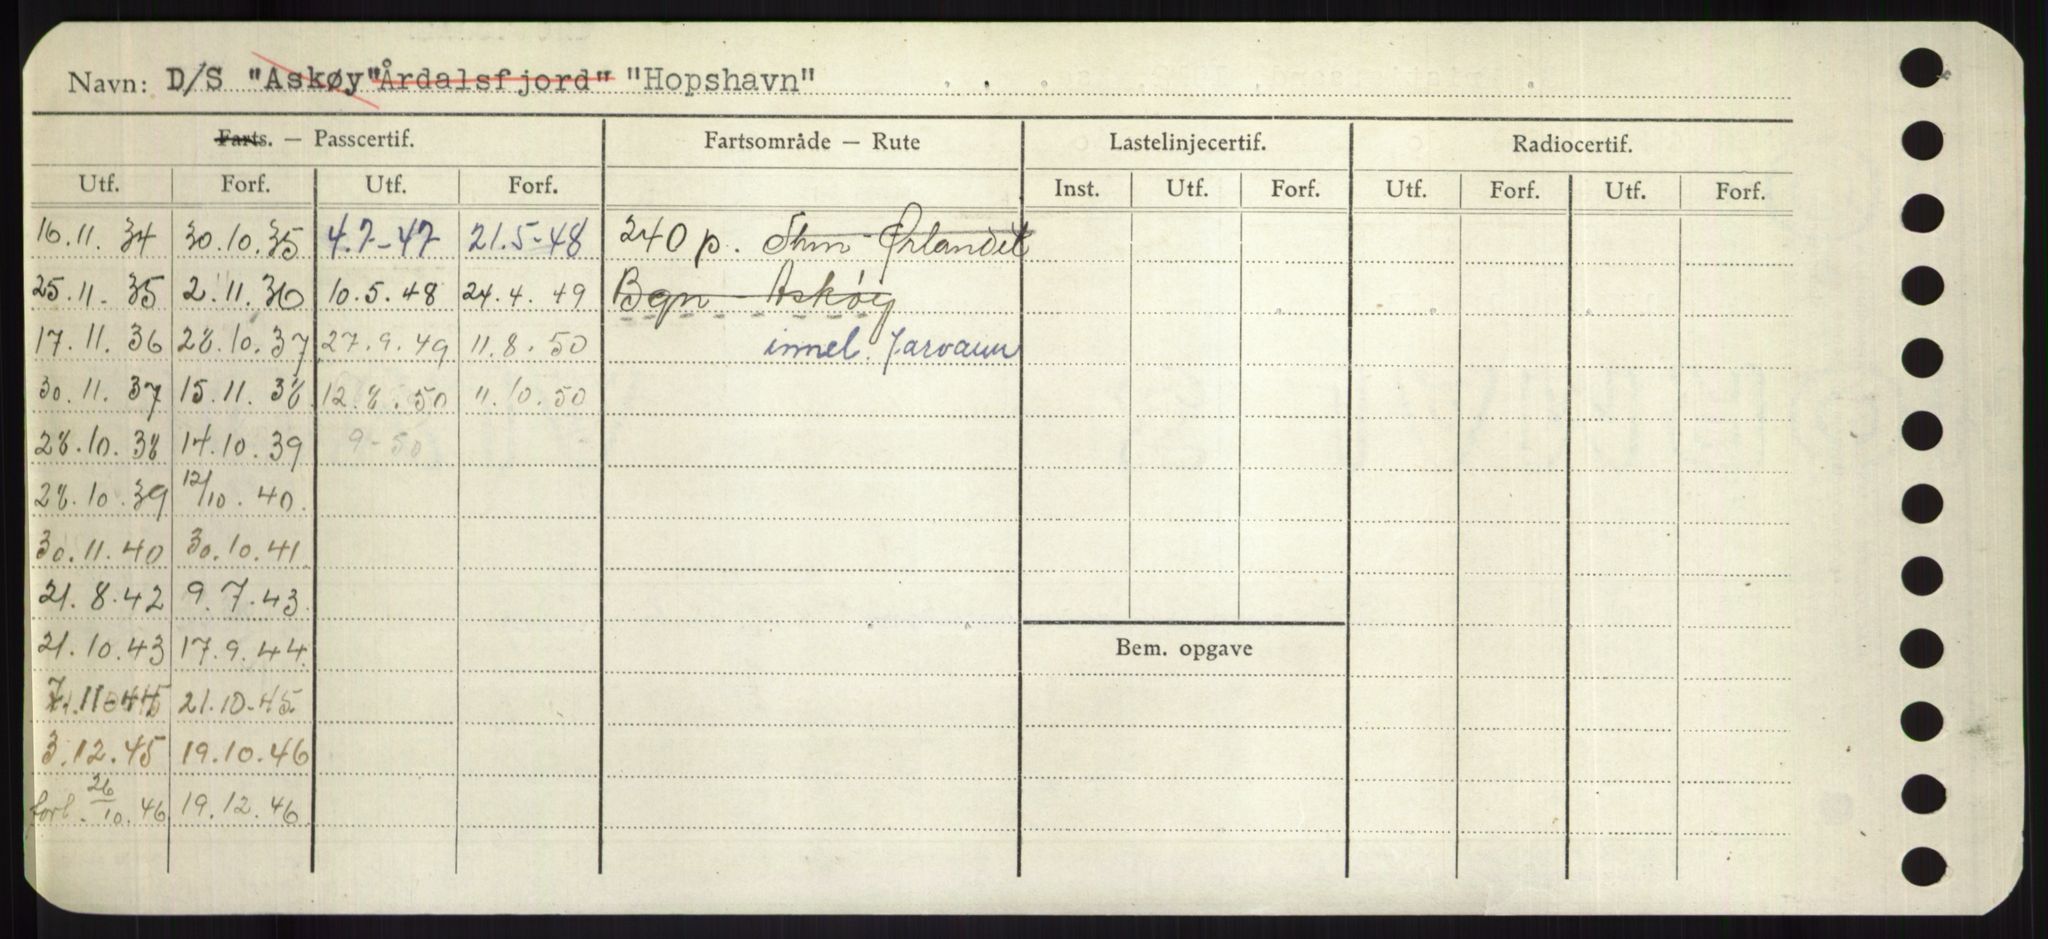 Navn: D/S "Askøy" "Årdalsfjord" "Hopshavn"
Farts. — Passcertif. Fartsområde — Rute Lastelinjecertif. Radiocertif.
Utf. Forf. Utf. Forf. Inst. Utf. Forf. Utf. Forf. Utf. Forf.
16.11.34 30.10.35 4.7-47 21.5-48 240 p. Ørlandet
25.11-35 2.11.36 10.5.48 24.4.49 Bgn - Askøy
17.11.36 28.10.37 27.9.49 11.8.50 innel. farvann
30.11.37 15.11.38 12.8.50 11.10.50
28.10.38 14.10.39 9-50
28.10.39 12/10.40
30.11.40 30.10.41
21.8.42 9.7.43
21.10.43 17.9.44 Bem. opgave
7.11.44 21.10-45
3.12.45 19.10.46
forl. 26/10.46 19.12.46